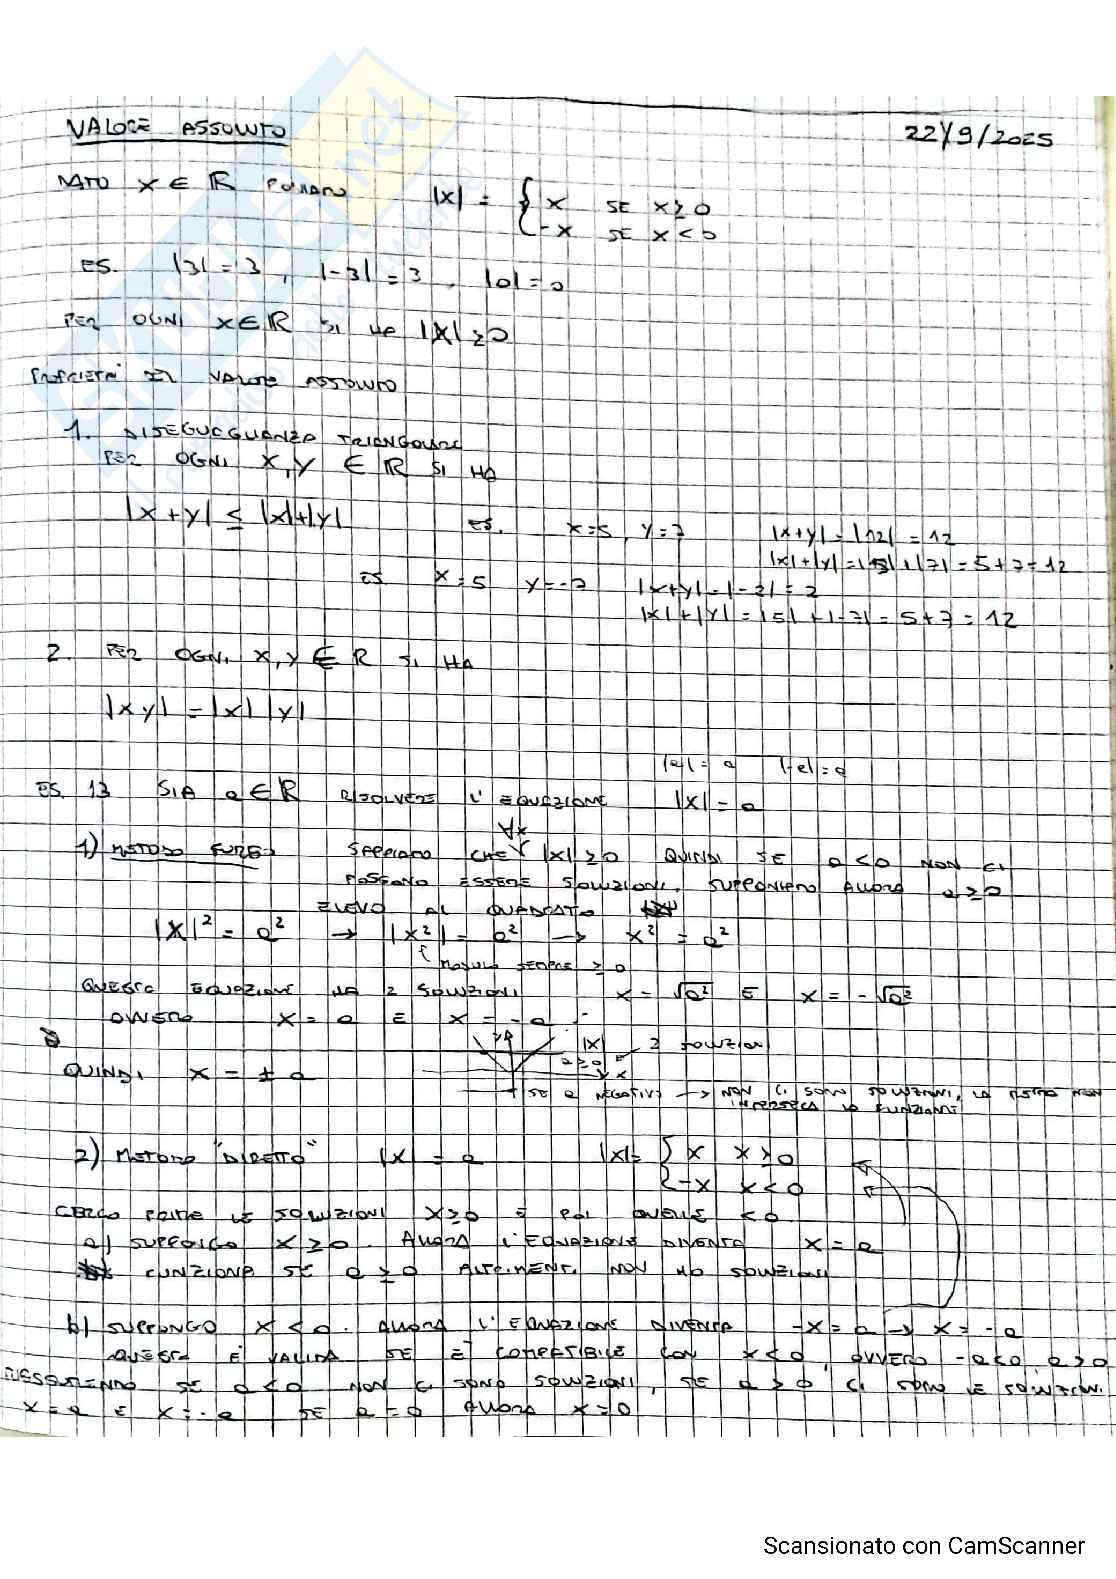 VALORE ASSOLUTO 22/9/2025
DATO x ∈ ℝ PONIAMO |x| = { x SE x ≥ 0
-x SE x < 0
ES. |3| = 3 , |-3| = 3 , |0| = 0
PER OGNI x ∈ ℝ SI HA |x| ≥ 0
PROPRIETA' DEL VALORE ASSOLUTO
1. DISEGUAGLIANZA TRIANGOLARE
PER OGNI x,y ∈ ℝ SI HA
|x+y| ≤ |x|+|y| ES. x=5, y=7 |x+y| = |12| = 12
|x|+|y| = |5|+|7| = 5+7 = 12
ES x=5 y=-7 |x+y| = |-2| = 2
|x|+|y| = |5| + |-7| = 5+7 = 12
2. PER OGNI x,y ∈ ℝ SI HA
|xy| = |x| |y|
|a| = a |-a| = a
ES. 13 SIA a ∈ ℝ RISOLVERE L'EQUAZIONE |x| = a
∀x
1) METODO FURBO SAPPIAMO CHE |x| ≥ 0 QUINDI SE a < 0 NON CI
POSSONO ESSERE SOLUZIONI. SUPPONIAMO ALLORA a ≥ 0
ELEVO AL QUADRATO
|x|² = a² → |x²| = a² → x² = a²
MODULO SEMPRE ≥ 0
QUESTA EQUAZIONE HA 2 SOLUZIONI x = √a² E x = -√a²
OVVERO x = a E x = -a
|x| 2 SOLUZIONI
a ≥ 0
QUINDI x = ± a
SE a NEGATIVO → NON CI SONO SOLUZIONI, LA RETTA NON
INTERSECA LA FUNZIONE
2) METODO "DIRETTO" |x| = a |x| = { x x ≥ 0
-x x < 0
CERCO PRIMA LE SOLUZIONI x ≥ 0 E POI QUELLE < 0
a) SUPPONGO x ≥ 0. ALLORA L'EQUAZIONE DIVENTA x = a
FUNZIONA SE a ≥ 0 ALTRIMENTI NON HO SOLUZIONI
b) SUPPONGO x < 0. ALLORA L'EQUAZIONE DIVENTA -x = a → x = -a
QUESTA E' VALIDA SE E' COMPATIBILE CON x < 0, OVVERO -a < 0, a > 0
RIASSUMENDO SE a < 0 NON CI SONO SOLUZIONI, SE a > 0 CI SONO LE SOLUZIONI
x = a E x = -a SE a = 0 ALLORA x = 0
Scansionato con CamScanner